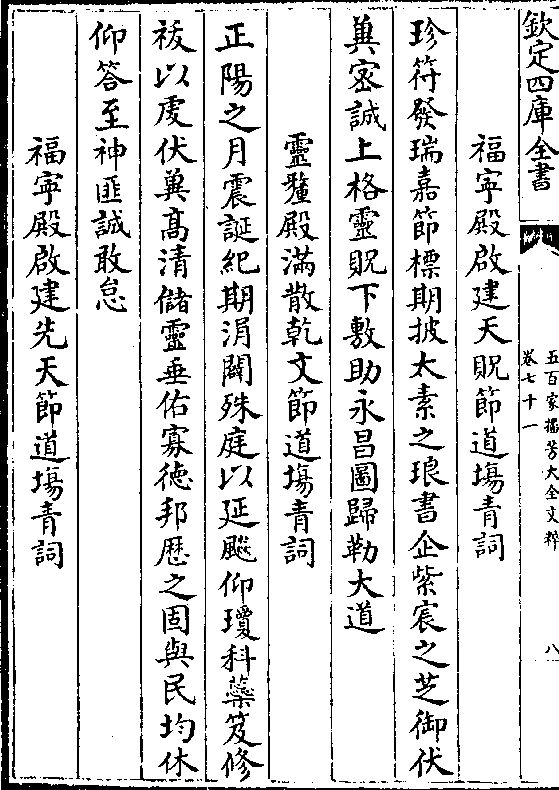 欽定四庫全書
五百家播芳大全文粹
卷七十一
八
福寧殿啟建天貺節道塲青詞
珍符發瑞嘉節標期披太素之琅書企紫宸之芝御伏
冀宻誠上格靈貺下敷助永昌圖歸勒大道
靈釐殿滿散乾文節道塲青詞
正陽之月震誕紀期涓闢殊庭以延飈仰瓊科蘂笈修
祓以䖍伏冀髙清儲靈垂佑寡徳邦厯之固與民均休
仰答至神匪誠敢怠
福寧殿啟建先天節道塲青詞